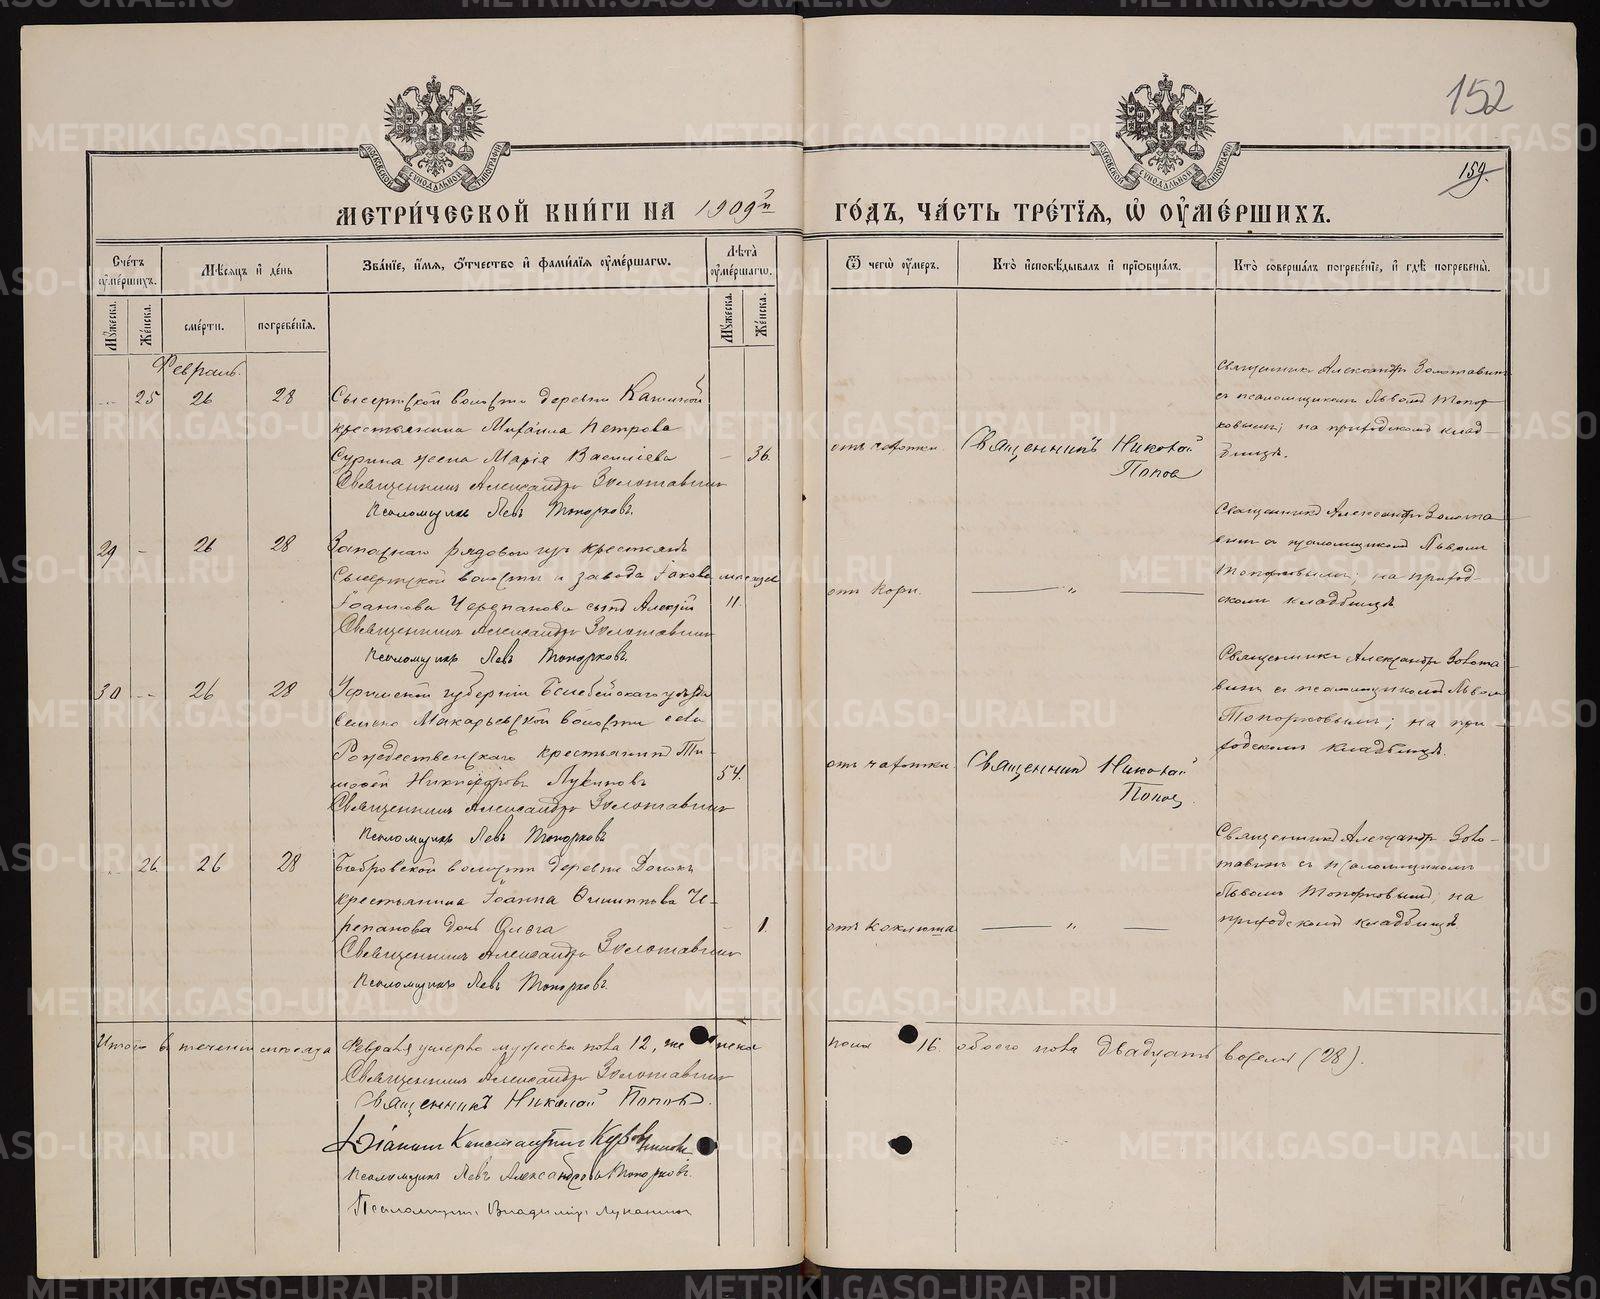 152
159.
МЕТРИ́ЧЕСКОЙ КНИ́ГИ НА 1909 ГО́ДЪ, ЧА́СТЬ ТРЕ́ТІЯ, Ѽ ОУ҆МЕ́РШИХЪ.
Сче́тъ оу҆ме́ршихъ.
Мѣ́сяцъ и҆ де́нь
Зва́нїе, и҆́мя, ѻ҆́тчество и҆ фами́лїя оу҆ме́ршагѡ.
Лѣ́та оу҆ме́ршагѡ.
Ѿ чегѡ̀ оу҆́меръ.
Кто̀ и҆сповѣ́дывалъ и҆ прїѡбща́лъ.
Кто̀ соверша́лъ погребе́нїе, и҆ гдѣ̀ погребены̀.
Мꙋ́жеска.
Же́нска.
сме́рти.
погребе́нїя.
Мꙋ́жеска.
Же́нска.
Февраль.
25 26 28
Сысертской волости деревни Кашиной
крестьянина Михаила Петрова
Сурина жена Марія Василіева
Священникъ Александръ Золотавинъ
Псаломщикъ Левъ Топорковъ.
36.
отъ чахотки
Священникъ Николай
Попов
Священникъ Александръ Золотавинъ
съ псаломщикомъ Львомъ Топор
ковымъ; на приходскомъ клад-
бищѣ.
29 - 26 28
Запаснаго рядового изъ крестьянъ
Сысертской волости и завода Іакова
Іоаннова Черепанова сынъ Алексій
Священникъ Александръ Золотавинъ
Псаломщикъ Левъ Топорковъ.
мѣсяцевъ
11.
отъ кори.
"
Священникъ Александръ Золота
винъ съ псаломщикомъ Львомъ
Топорковымъ; на приход-
скомъ кладбищѣ
30 - 26 28
Уфимской губерніи Белебейскаго уѣзда
Макарьевской волости села
Рождественскаго крестьянинъ Ти-
мофей Никифоровъ Лукиновъ
Священникъ Александръ Золотавинъ
Псаломщикъ Левъ Топорковъ
54.
отъ чахотки
Священник Николай
Попов
Священникъ Александръ Золота-
винъ съ псаломщикомъ Львомъ
Топорковымъ; на при-
ходскомъ кладбищѣ.
26 26 28
Бобровской волости деревни
крестьянина Іоанна Филиппова Че-
репанова дочь Ольга
Священникъ Александръ Золотавинъ
Псаломщикъ Левъ Топорковъ.
1
отъ коклюша
"
Священникъ Александръ Золо-
тавинъ съ псаломщикомъ
Львомъ Топорковымъ, на
приходскомъ кладбищѣ
Итого в теченіи мѣсяца Февраля умерло мужеска пола 12, женска пола 16. обоего пола двадцать восемь (28).
Священникъ Александръ Золотавинъ
Священникъ Николай Попов.
Діаконъ Константинъ
Псаломщикъ Левъ Александровъ Топорковъ.
Псаломщикъ Владиміръ Луканинъ